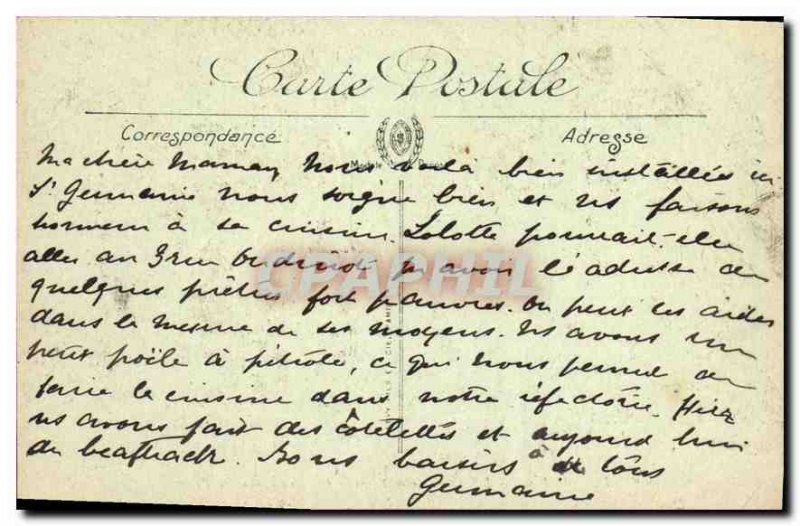 Carte Postale
Correspondance
Adresse
Ma chère Maman Nous voilà bien installées ici
St Germaine nous soigne bien et ns faisons
honneur à sa cuisine. Lolotte pourrait-elle
aller au 3 rue pr avoir l'adresse de
quelques prêtres fort pauvres. On peut les aider
dans la mesure de ses moyens. Ns avons un
petit poële à pétrole, ce qui nous permet de
faire la cuisine dans notre réfectoire. Hier
ns avons fait des côtelettes et aujourd'hui
du beafteack. Bons baisers à tous
Germaine
CPAPHIL